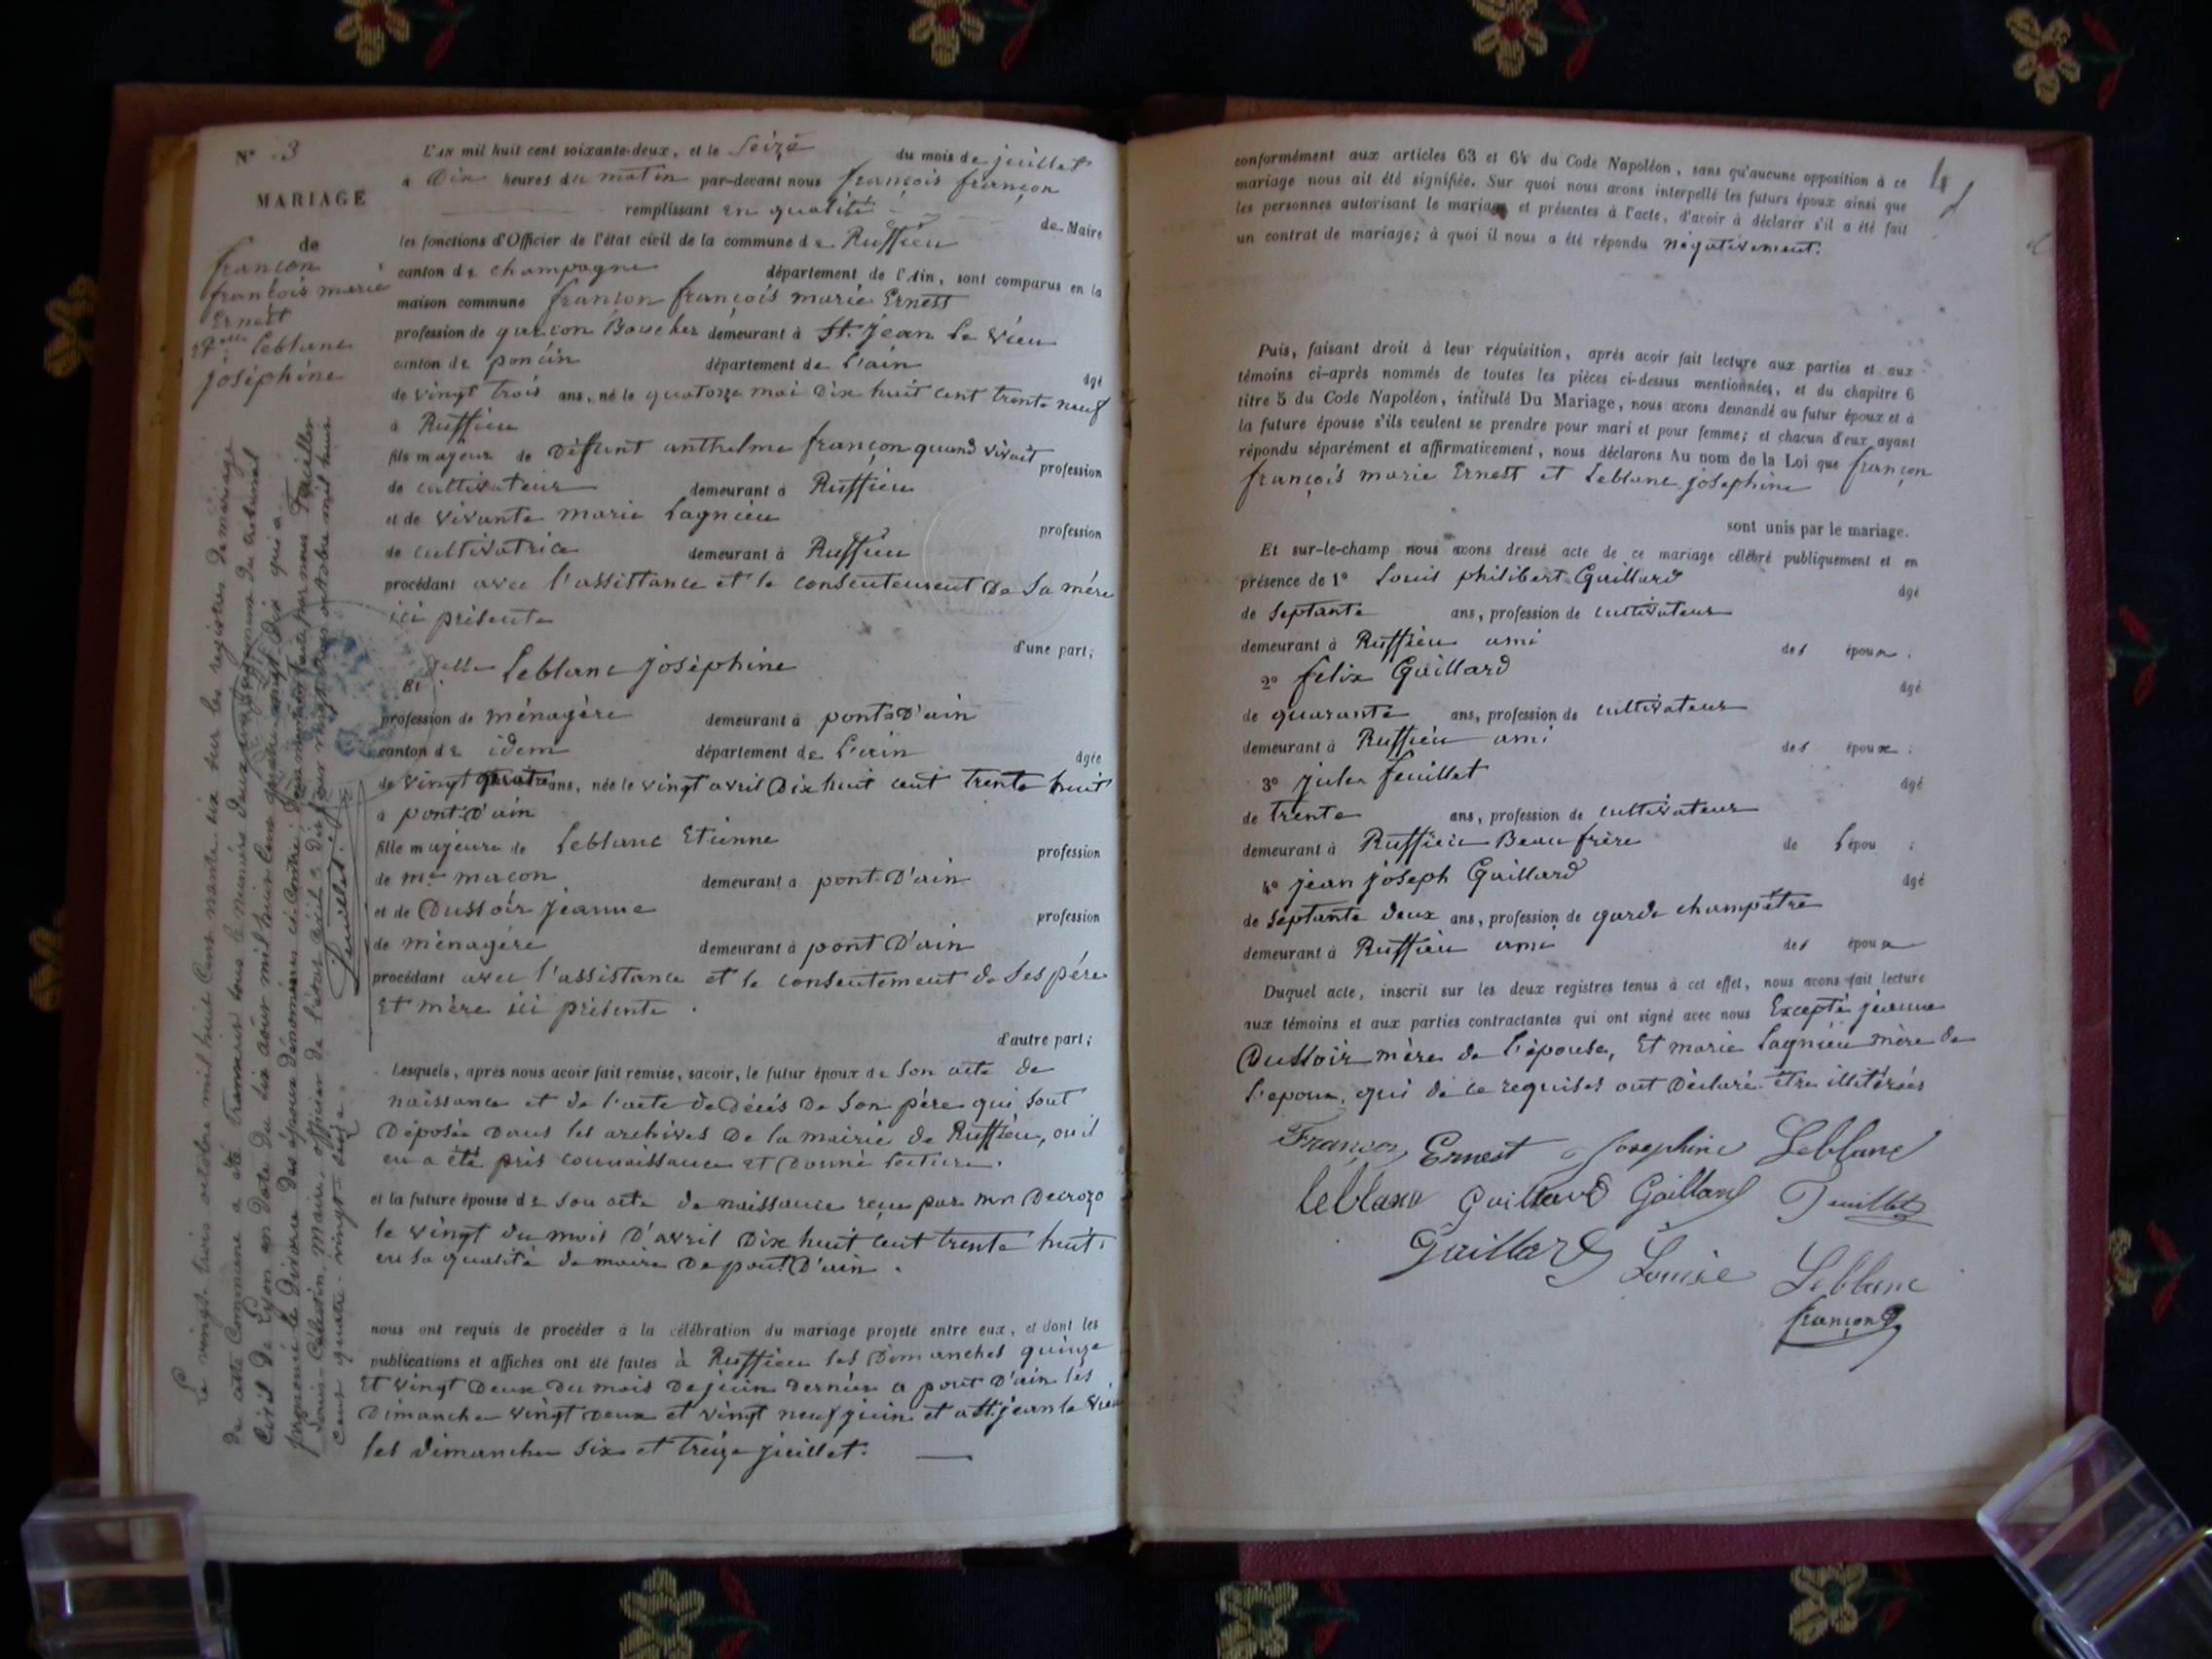 N° 3
MARIAGE
de
françon
françois marie
Ernest
et delle leblanc
joséphine
L'AN mil huit cent soixante-deux, et le seize du mois de juillet
à Dix heures du matin par-devant nous françois françon
remplissant en qualité de Maire
les fonctions d'Officier de l'état civil de la commune de Ruffieu
canton de champagne département de l'Ain, sont comparus en la
maison commune françon françois marie Ernest
profession de garçon Boucher demeurant à St. jean le vieu
canton de poncin département de l'ain âgé
de vingt trois ans, né le quatorze mai dix huit cent trente neuf
à Ruffieu
fils majeur de Deffunt anthelme françon quand vivait profession
de cultivateur demeurant à Ruffieu
et de vivante marie Lagnieu profession
de cultivatrice demeurant à Ruffieu
procédant avec l'assittance et le consentement de sa mére
ici présente
d'une part;
Et delle Leblanc joséphine
profession de ménagère demeurant à pont-D'ain
canton de idem département de l'ain âgée
de vingt quatre ans, née le vingt avril Dix huit cent trente huit
à pont-D'ain
fille majeure de Leblanc Etienne profession
de me macon demeurant à pont-D'ain
et de Dussoir jeanne profession
de ménagére demeurant à pont D'ain
procédant avec l'assistance et le consentement de ses pére
Et mère ici présente.
d'autre part;
Lesquels, après nous avoir fait remise, savoir, le futur époux de son acte de
naissance et de l'acte de décés de son pére qui sont
Déposée dans les archives de la mairie de Ruffieu, ou il
en a été pris connaissance et donné lecture.
et la future épouse de son acte de naissance reçu par mr Decrozo
le vingt du mois D'avril Dix huit cent trente huit
en sa qualité de maire De pont D'ain.
nous ont requis de procéder à la célébration du mariage projeté entre eux, et dont les
publications et affiches ont été faites à Ruffieu les Dimanches quinze
Et vingt Deux du mois De juin dernier a pont D'ain les
Dimanche vingt Deux et vingt neuf juin et a St. jean le vieu
les dimanche six et treize juillet.
Le vingt trois octobre mil huit cent nonante six sur les registres de mariage
de cette Commune a été transcrit sous le numéro deux un jugement du tribunal
Civil de Lyon en date du six août mil huit cent quatre-vingt dix qui a
prononcé le Divorce des époux dénommés ci-contre; faite par nous Feuillet
Louis-Célestin, Maire, officier de l'état civil octobre mil huit
cent quatre-vingt-seize.
Feuillet
4
conformément aux articles 63 et 64 du Code Napoléon, sans qu'aucune opposition à ce
mariage nous ait été signifiée. Sur quoi nous avons interpellé les futurs époux ainsi que
les personnes autorisant le mariage et présentes à l'acte, d'avoir à déclarer s'il a été fait
un contrat de mariage; à quoi il nous a été répondu négativement.
Puis, faisant droit à leur réquisition, après avoir fait lecture aux parties et aux
témoins ci-après nommés de toutes les pièces ci-dessus mentionnées, et du chapitre 6
titre 5 du Code Napoléon, intitulé Du Mariage, nous avons demandé au futur époux et à
la future épouse s'ils veulent se prendre pour mari et pour femme; et chacun d'eux ayant
répondu séparément et affirmativement, nous déclarons Au nom de la Loi que françon
françois marie Ernest et Leblanc joséphine
sont unis par le mariage.
Et sur-le-champ nous avons dressé acte de ce mariage célébré publiquement et en
présence de 1° Louis philibert Guillard âgé
de septante ans, profession de cultivateur
demeurant à Ruffieu ami des époux;
2° félix Guillard âgé
de quarante ans, profession de cultivateur
demeurant à Ruffieu ami des époux;
3° jules feuillet âgé
de trente ans, profession de cultivateur
demeurant à Ruffieu Beau frère de l'épou;
4° jean joseph Guillard âgé
de septante deux ans, profession de garde champétre
demeurant à Ruffieu ami des époux
Duquel acte, inscrit sur les deux registres tenus à cet effet, nous avons fait lecture
aux témoins et aux parties contractantes qui ont signé avec nous Excepté jeanne
Dussoir mère de l'épouse, Et marie Lagnieu mère de
l'epoux, qui de ce requises ont Déclaré être illitérées
Françon Ernest Joséphine Leblanc
leblanc Guillard Guillard Feuillet
Guillard Louise Leblanc
françon